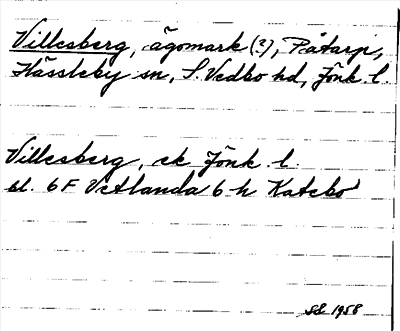 Villesberg, ägomark (?), Påtarp,
Hässleby sn, S. Vedbo hd, Jönk. l.
Villesberg, ek Jönk. l.
bl. 6 F Vetlanda 6 h Katebo
SE 1958